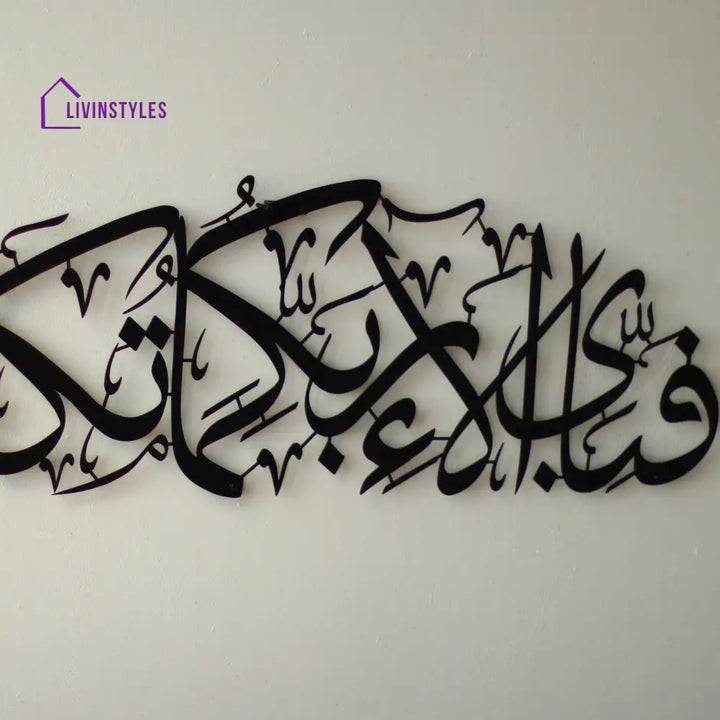 LIVINSTYLES
فبأي آلاء ربكما تك